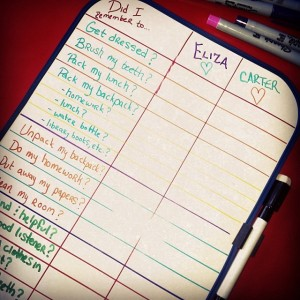 Did I
remember to...
ELIZA
CARTER
Get dressed?
Brush my teeth?
Pack my lunch?
Pack my backpack?
- homework?
- lunch?
- water bottle?
- library books, etc.?
Unpack my backpack?
Do my homework?
Put away my papers?
my room?
helpful?
listener?
clothes in
teeth?